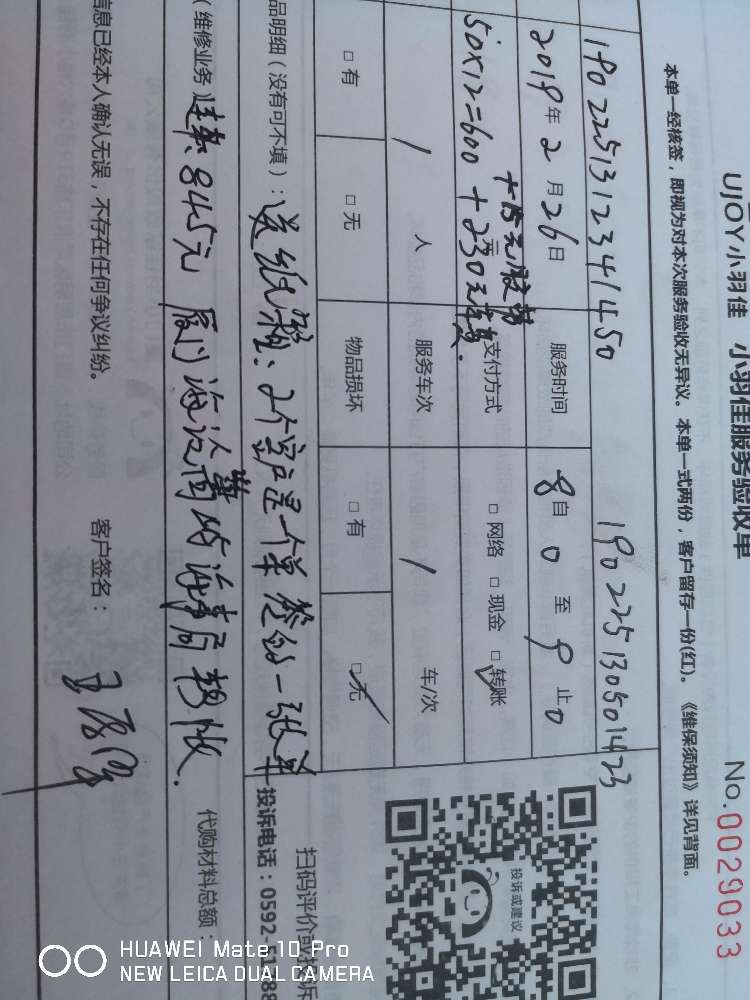 UJOY小羽佳 小羽佳服务验收单
No.0029033
本单一经核签，即视为对本次服务验收无异议。本单一式两份，客户留存一份(红)。《维保须知》详见背面。
1902251312341450 190225130501423
2019年2月26日 服务时间 8自0至9止0
+15元胶带
50×12=600+230元车费. 支付方式 □网络 □现金 □转账
/ 人 服务车次 / 车/次
□有 □无 物品损坏 □有 □无
品明细（没有可不填）：送纸箱：2个客户是一个单签的一张单
（维修业务） 845元 厦门海沧 海事局
代购材料总额：
信息已经本人确认无误，不存在任何争议纠纷。 客户签名：
投诉或建议
扫码评价或投诉
投诉电话：0592-
HUAWEI Mate 10 Pro
NEW LEICA DUAL CAMERA